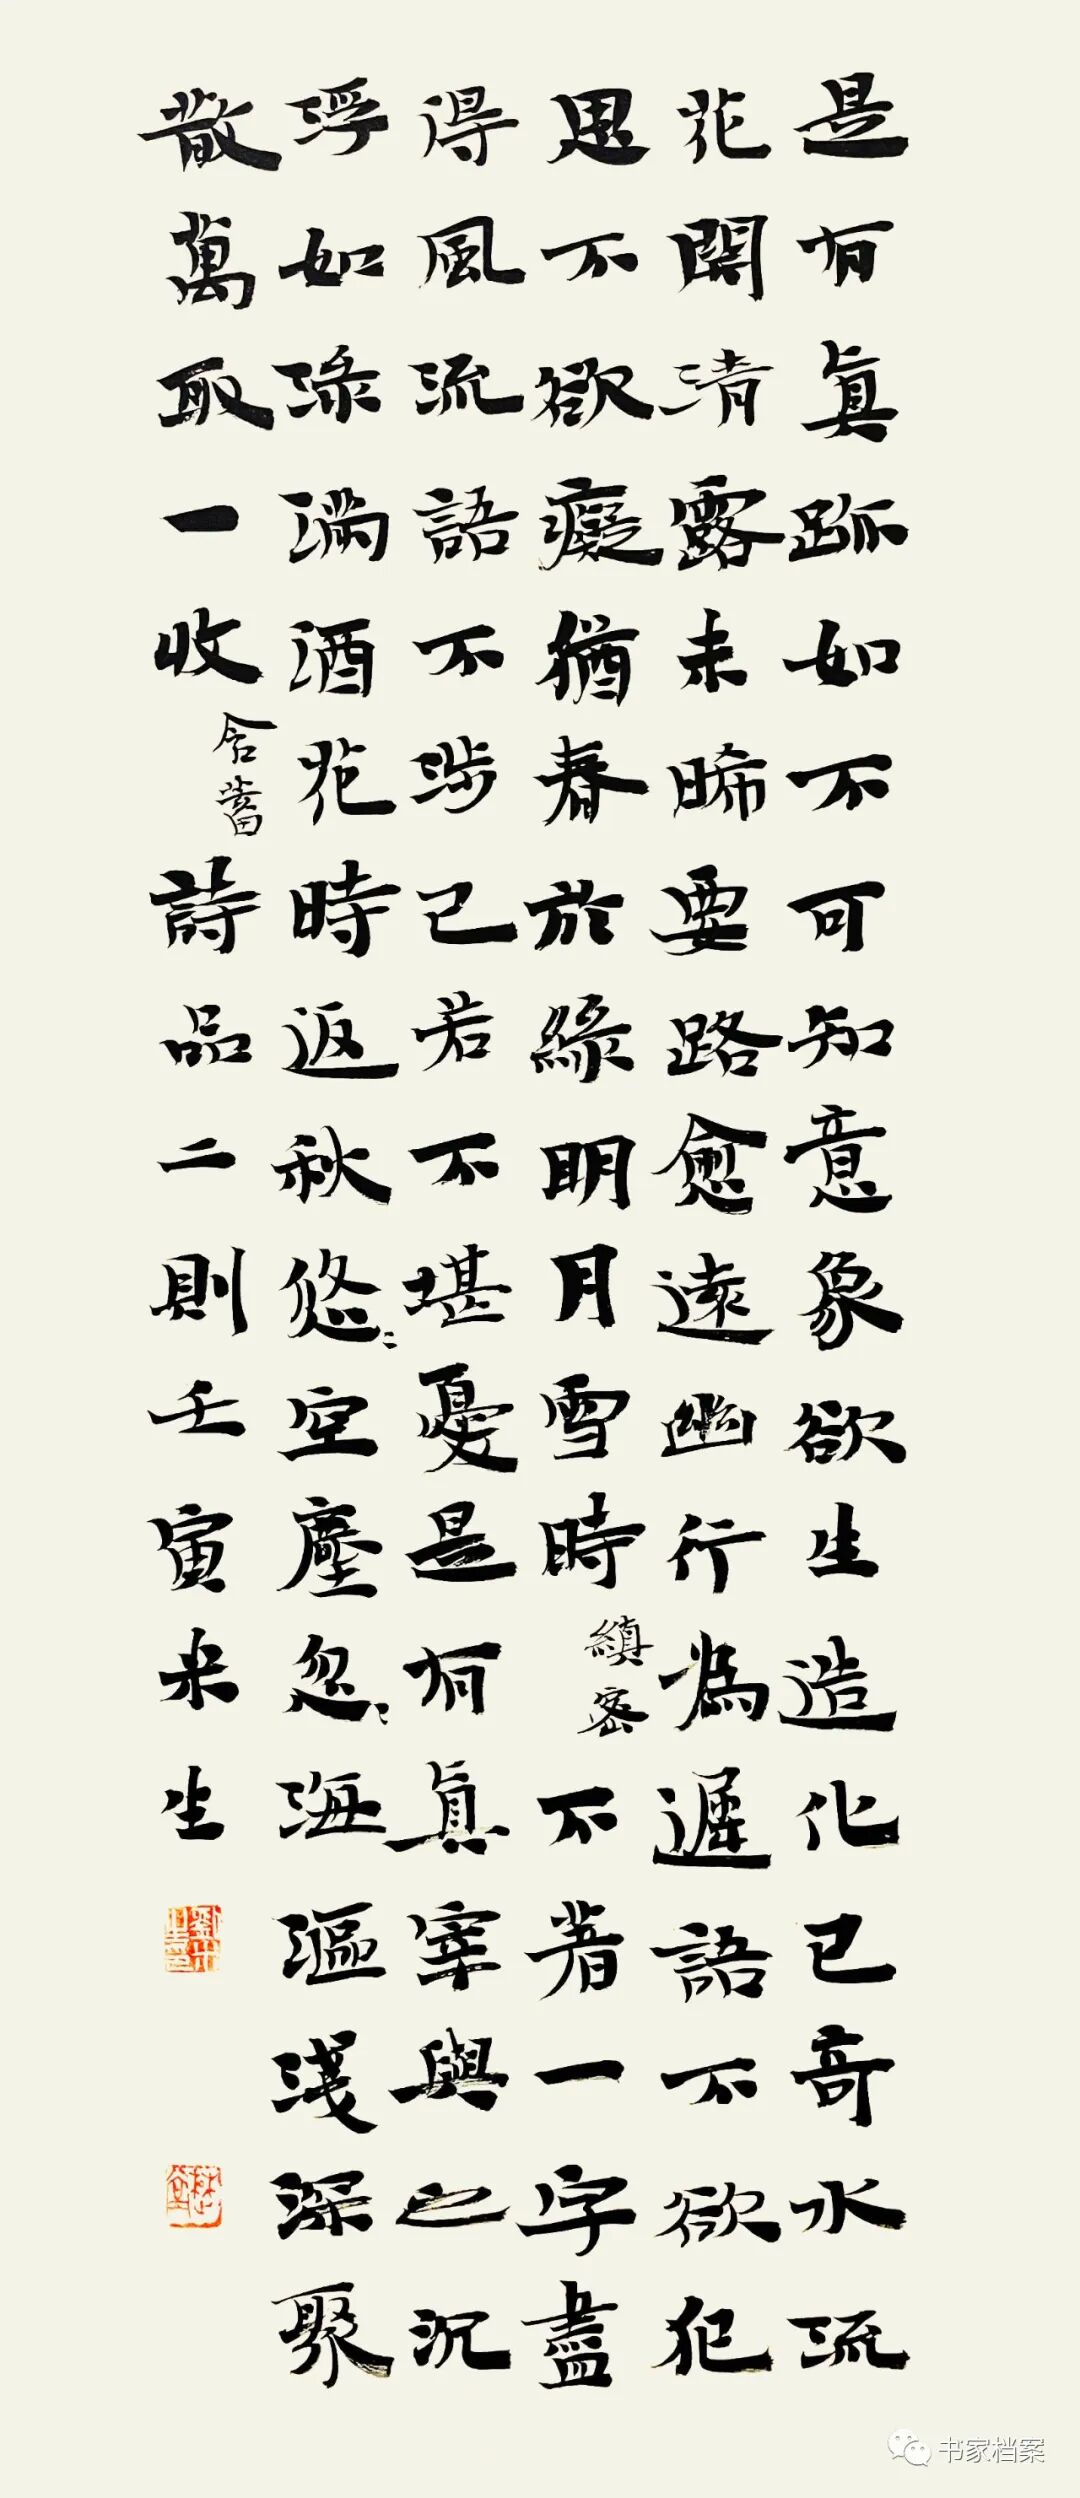 是有眞跡如不可知意象欲生造化已奇水流
花開清露未晞要路愈遠幽行為遲語不欲犯
思不欲癡猶春於綠明月雪時縝密不著一字盡
得風流語不涉己若不堪憂是有眞宰與之沉
浮如淥滿酒花時返秋悠〻空塵忽〻海漚淺深聚
散萬取一收含蓄詩品二則壬寅米生
书家档案